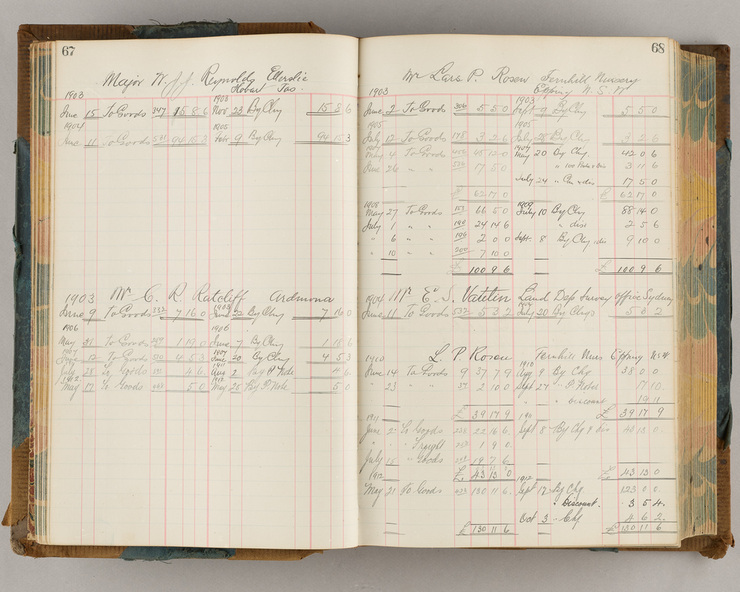 67
Major W. J. J. Reynolds Ellerslie
Hobart Tas.
1903
June 15 To Goods 347 15 8 6 1903 Nov 23 By Chq 15 8 6
1904
June 11 To Goods 94 15 3 1905 Feb 9 By Chq 94 15 3
1903 Mr C. R. Ratcliff Ardmona
June 9 To Goods 332 7 16 0 22 By Chq 7 16 0
1906 1906
May 21 To Goods 1 19 0 June 7 By Chq
1907 1907
To Goods 4 5 3 By Chq 4 5 3
July 23 To Goods 4 6 1911 Aug 2 By P Note 4 6
1912 1912
May 17 To Goods 5 0 May 25 By P Note 5 0
68
Mr Lars P. Rosen Fernhill Nursery
Epping N. S. W
1903 1903
June 2 To Goods 5 5 0 Sept 9 By Chq 5 5 0
1905 1905
July 12 To Goods 178 3 2 6 July 28 By Chq 3 2 6
1907 1907
May 4 To Goods May 20 By Chq 42 0 6
June 26 " " 17 5 0
July 24 17 5 0
£ 62 17 0 £ 62 17 0
1908 1909
May 27 To Goods 157 66 5 0 July 10 By Chq 88 14 0
July 1 " " 194 24 14 6 " dis 2 5 6
" 6 " " 199 2 0 0 Sept 8 By Chq & dis 9 10 0
" 10 " " 7 10 0
£ 100 9 6 £ 100 9 6
1904 Mr E. S. Land Dep Survey Office Sydney
June 11 To Goods 532 5 3 2 July 20 By Chqs
1910 L. P. Rosen Fernhill Nurs Epping N.S.W
June 14 To Goods 9 37 7 9 1910 Aug 9 By Chq 38 0 0
" 23 " " 37 2 10 0 Sept 27 " P Notes 17 10
" Discount 19 11
£ 39 17 9 £ 39 17 9
1911 1911
June 2 To Goods 22 16 6 Sept 8 By Chq & Dis 43 13 0
" " Freight 1 9 0
July 15 " Goods 19 7 6
£ 43 13 0 £ 43 13 0
1912 1912
May 21 To Goods 130 11 6 Sept 17 By Chq 123 0 0
" Discount 3 5 4
Oct 3 " Chq 4 6 2
£ 130 11 6 £ 130 11 6